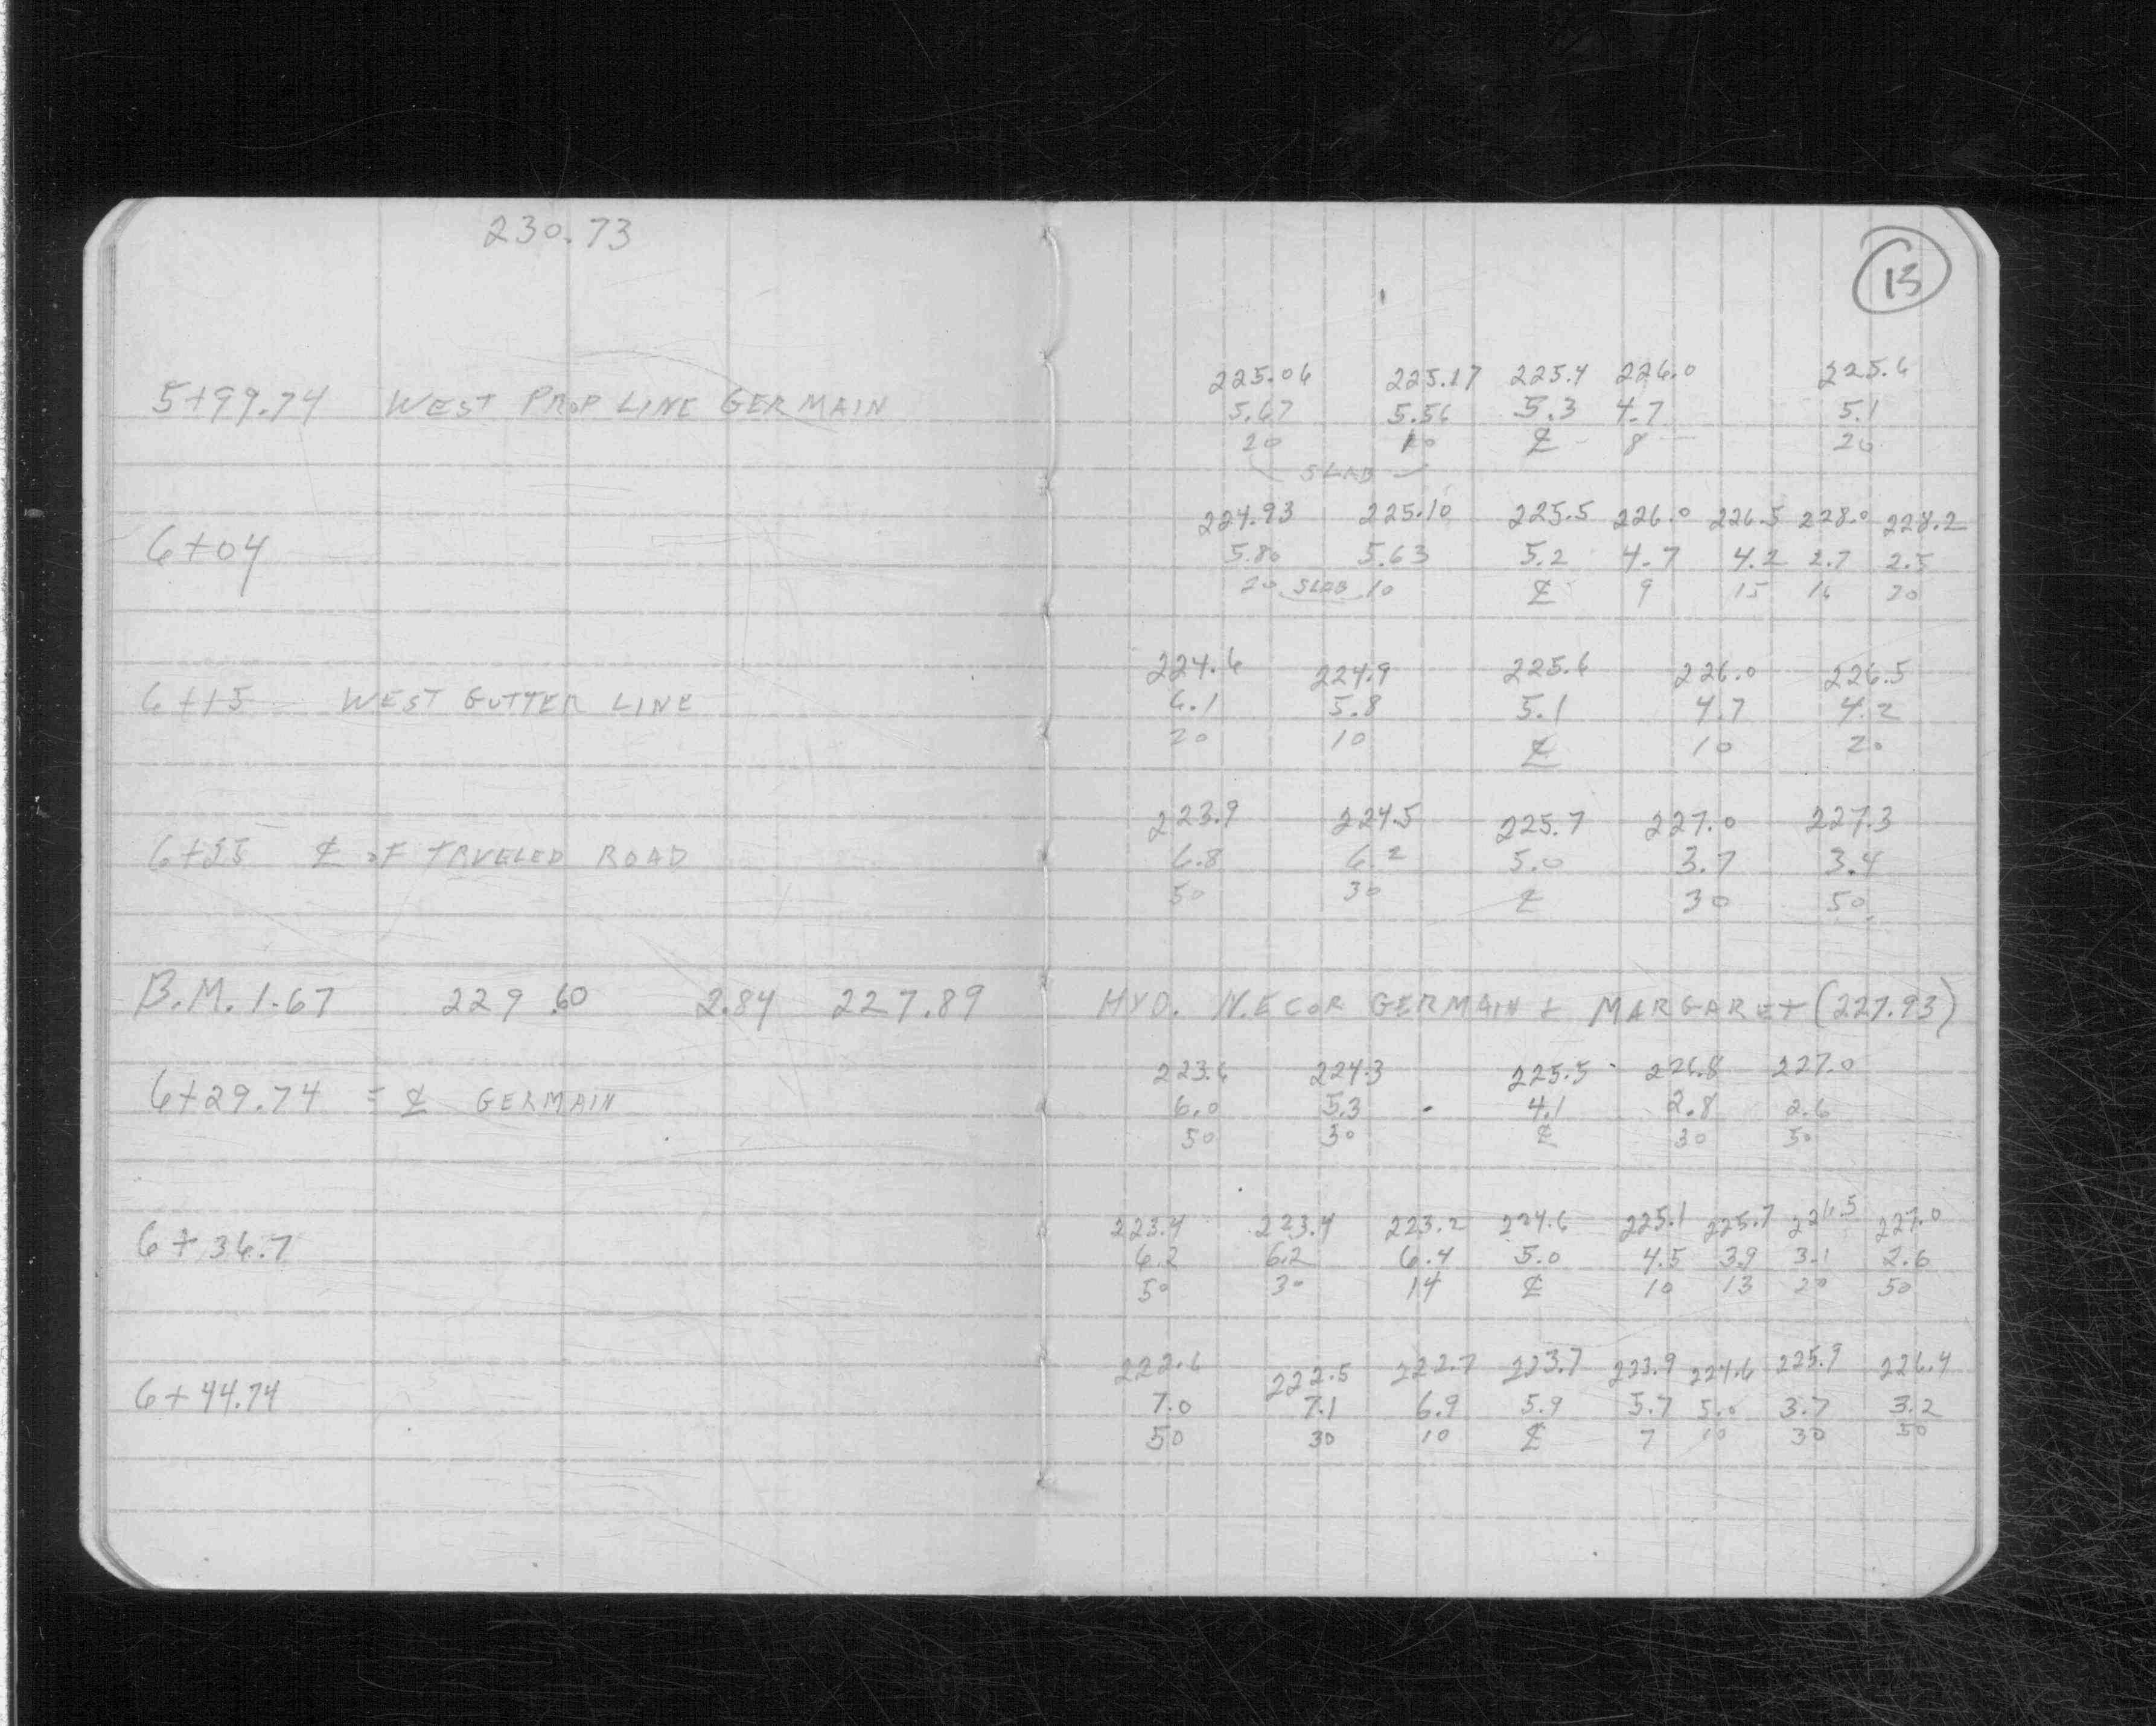 230.73
13
225.06 225.17 225.4 226.0 225.6
5+99.74 WEST PROP LINE GERMAIN 5.67 5.56 5.3 4.7 5.1
20 10 ℄ 8 20
SLAB
224.93 225.10 225.5 226.0 226.5 228.0 228.2
6+04 5.80 5.63 5.2 4.7 4.2 2.7 2.5
20 SLAB 10 ℄ 9 15 16 20
224.6 224.9 225.6 226.0 226.5
6+15 WEST GUTTER LINE 6.1 5.8 5.1 4.7 4.2
20 10 ℄ 10 20
223.9 224.5 225.7 227.0 227.3
6+25 ℄ OF TRVELED ROAD 6.8 6.2 5.0 3.7 3.4
50 30 ℄ 30 50
B.M. 1.67 229.60 2.84 227.89 HYD. N.E COR GERMAIN & MARGARET (227.93)
223.6 224.3 225.5 226.8 227.0
6+29.74 = ℄ GERMAIN 6.0 5.3 4.1 2.8 2.6
50 30 ℄ 30 50
223.4 223.4 223.2 224.6 225.1 225.7 226.5 227.0
6+36.7 6.2 6.2 6.4 5.0 4.5 3.9 3.1 2.6
50 30 14 ℄ 10 13 20 50
222.6 222.5 222.7 223.7 223.9 224.6 225.9 226.4
6+44.74 7.0 7.1 6.9 5.9 5.7 5.0 3.7 3.2
50 30 10 ℄ 7 10 30 50